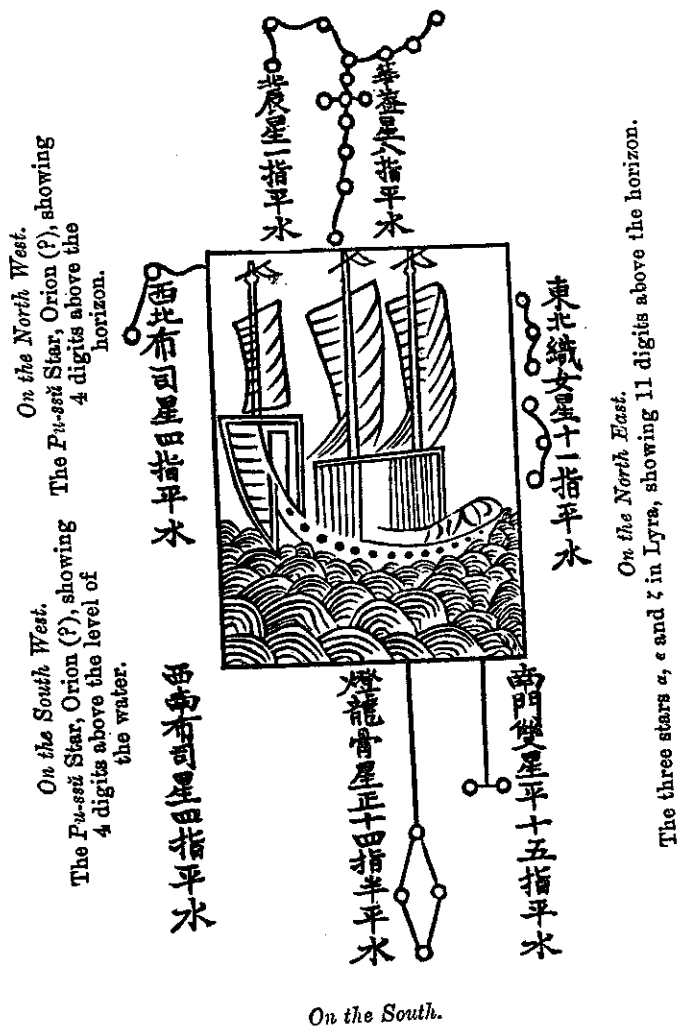 On the South West.
The Pu-ssŭ Star, Orion (?), showing
4 digits above the level of
the water.
On the North West.
The Pu-ssŭ Star, Orion (?), showing
4 digits above the
horizon.
辰星一指平水
華蓋星八指平水
西北布司星四指平水
東北織女星十一指平水
西南布司星四指平水
燈籠骨星正十四指半平水
南門雙星平十五指平水
On the South.
On the North East.
The three stars α, ε and ζ in Lyra, showing 11 digits above the horizon.